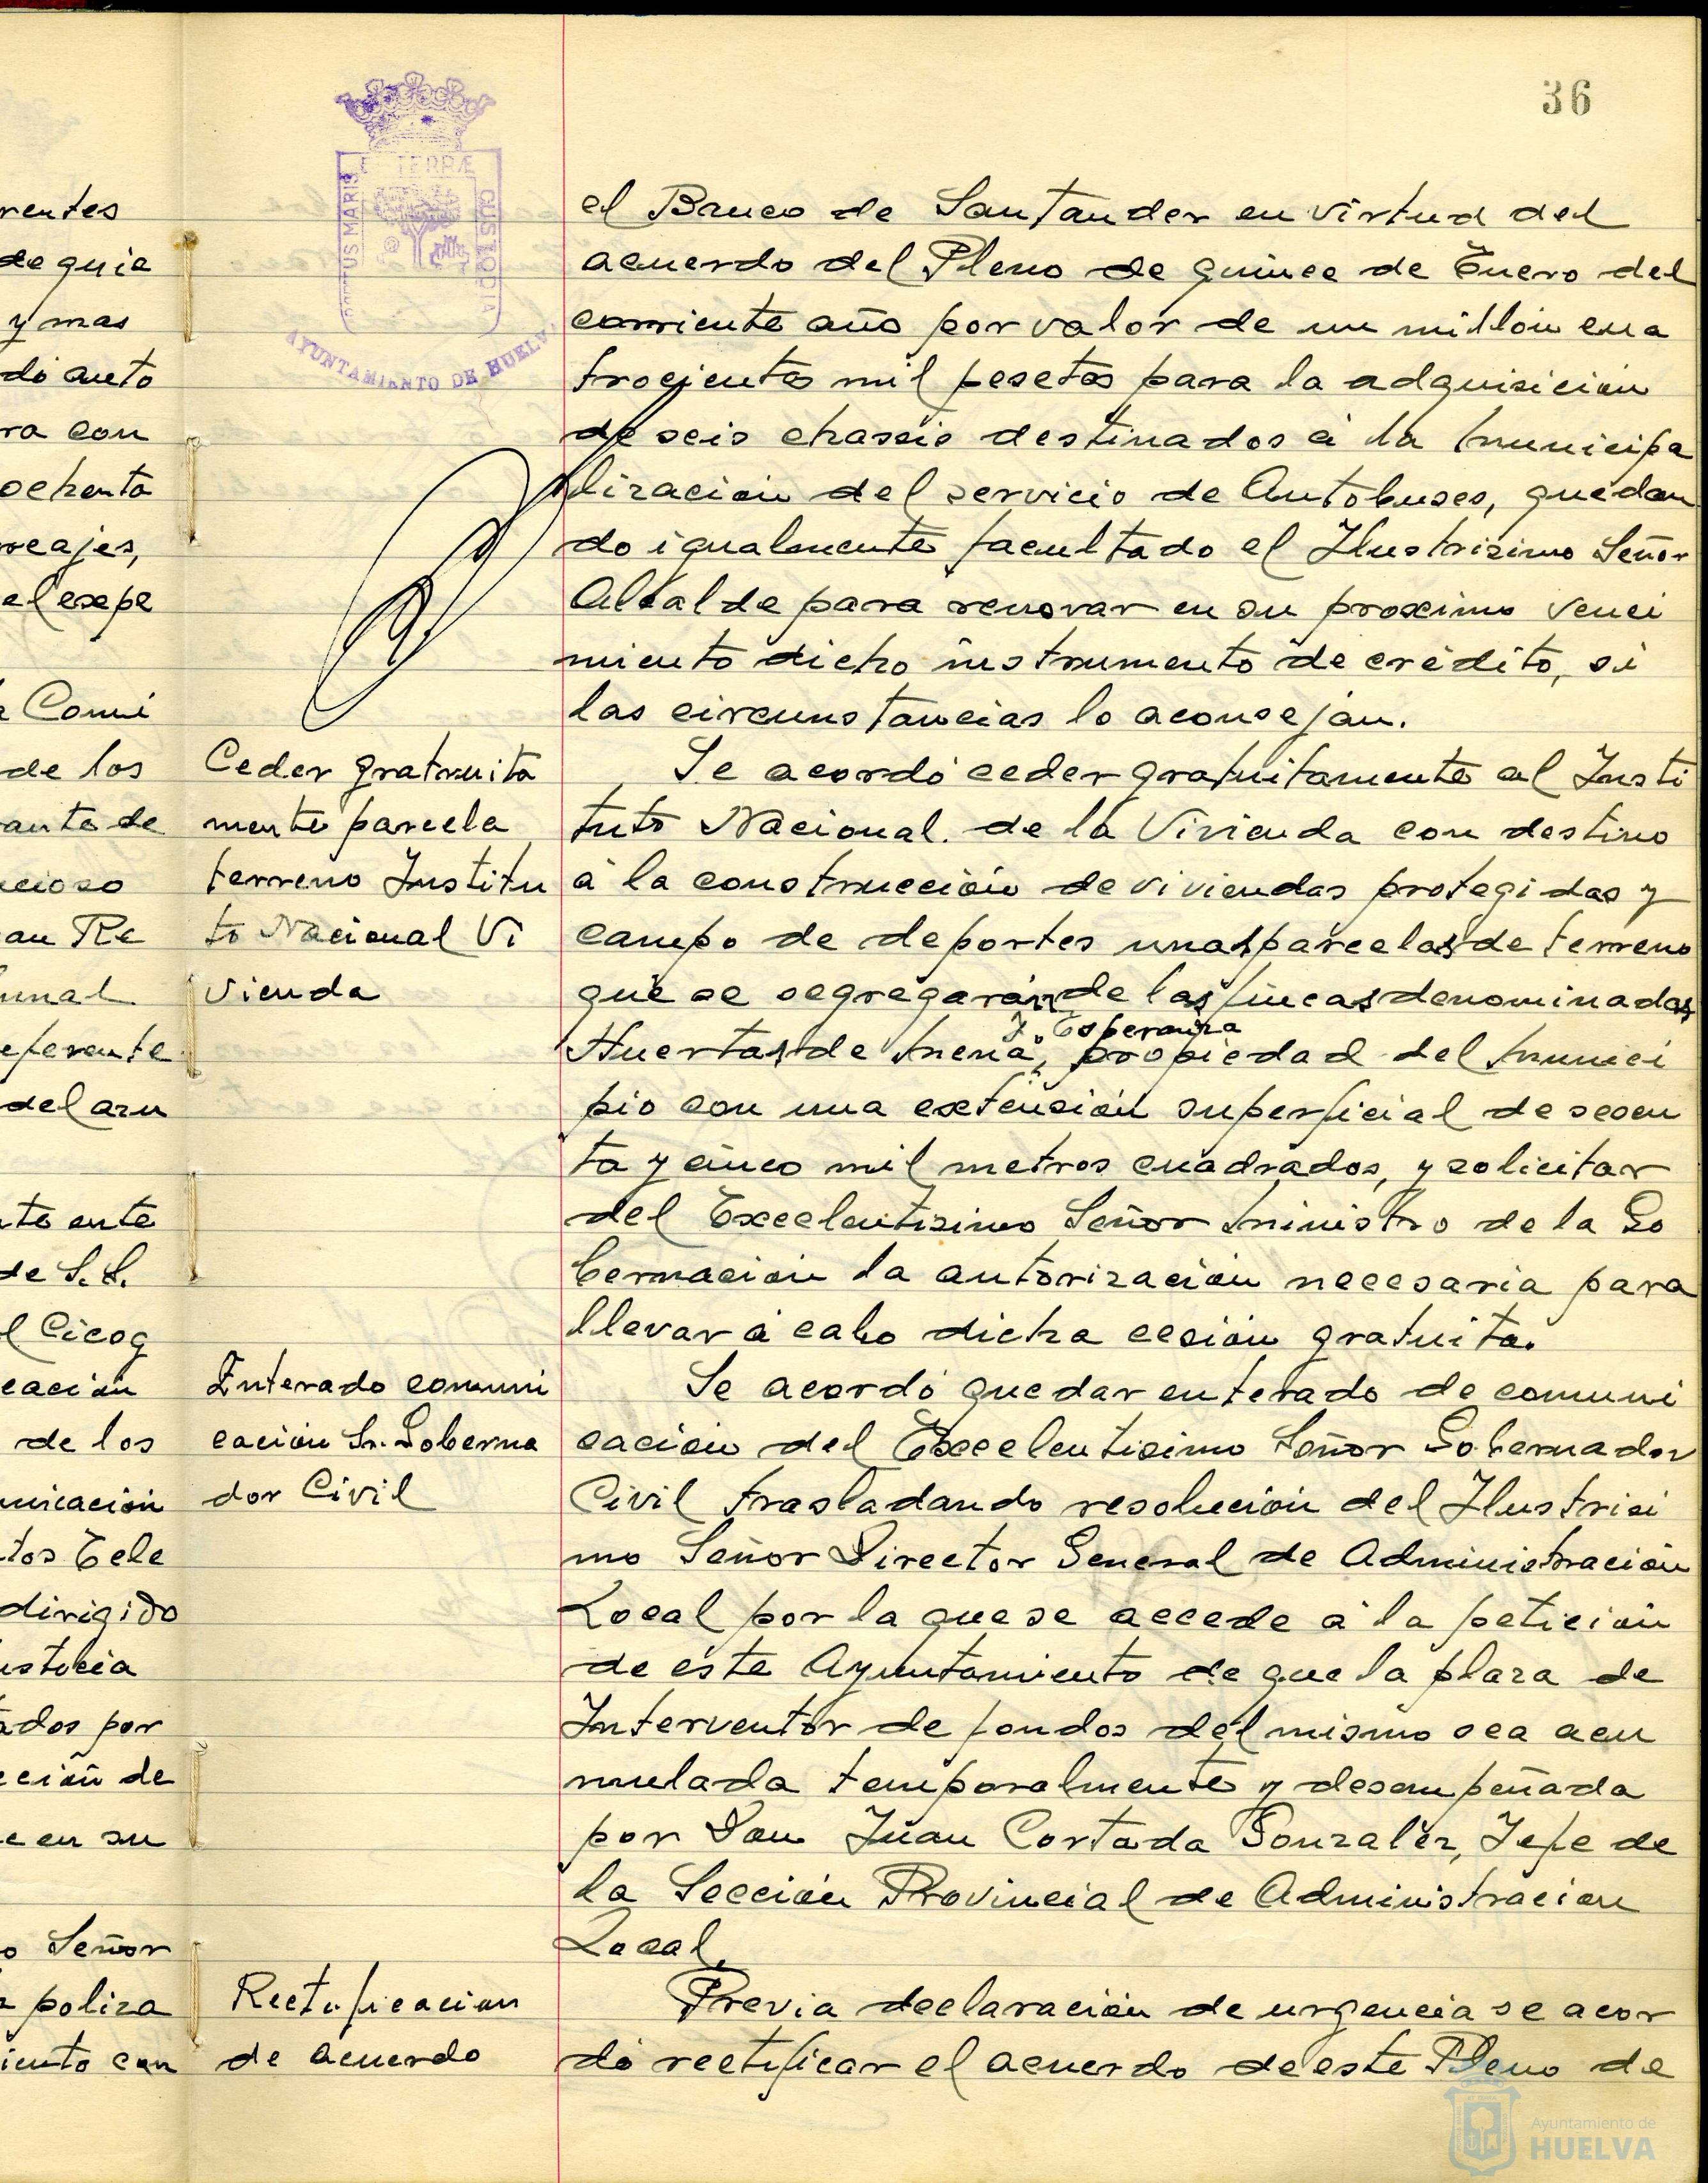 36
PORTUS MARIS ET TERRÆ CUSTODIA
AYUNTAMIENTO DE HUELVA
rentes
de quie
y mas
dó auto
ra con
ochenta
reajes,
el expe
Comi
de los
ante de
cioso
an Re
unal
eferente
del azu
to ante
de S. S.
l Cicog
cación
de los
unicación
tos Tele
dirigido
usticia
ados por
cción de
e en su
o Señor
poliza
iento con
el Banco de Santander en virtud del
acuerdo del Pleno de quince de Enero del
corriente año por valor de un millón cua
trocientas mil pesetas para la adquisición
de seis chassis destinados á la municipa
lización del servicio de Autobuses, quedan
do igualmente facultado el Ilustrisimo Señor
Alcalde para renovar en su proximo venci
miento dicho instrumento de crédito, si
las circunstancias lo aconsejan.
Ceder gratruita
mente parcela
terreno Institu
to Nacional Vi
vienda
Se acordó ceder gratuitamente al Insti
tuto Nacional de la Vivienda con destino
á la construcción de viviendas protegidas y
campo de deportes unas parcelas de terreno
que se segregarán de las fincas denominadas
Y. Esperanza
Huertas de Mena, propiedad del Munici
pio con una extensión superficial de sesen
ta y cinco mil metros cuadrados, y solicitar
del Excelentisimo Señor Ministro de la Go
bernación la autorización necesaria para
llevar á cabo dicha cesión gratuita.
Enterado comuni
cación Sr. Goberna
dor Civil
Se acordó quedar enterado de comuni
cación del Excelentisimo Señor Gobernador
Civil trasladando resolución del Ilustrisi
mo Señor Director General de Administración
Local por la que se accede á la petición
de este Ayuntamiento de que la plaza de
Interventor de fondos del mismo sea acu
mulada temporalmente y desempeñada
por Don Juan Cortada Gonzalez, Jefe de
la Sección Provincial de Administracion
Local.
Rectificacion
de acuerdo
Previa declaración de urgencia se acor
dó rectificar el acuerdo de este Pleno de
Ayuntamiento de
HUELVA